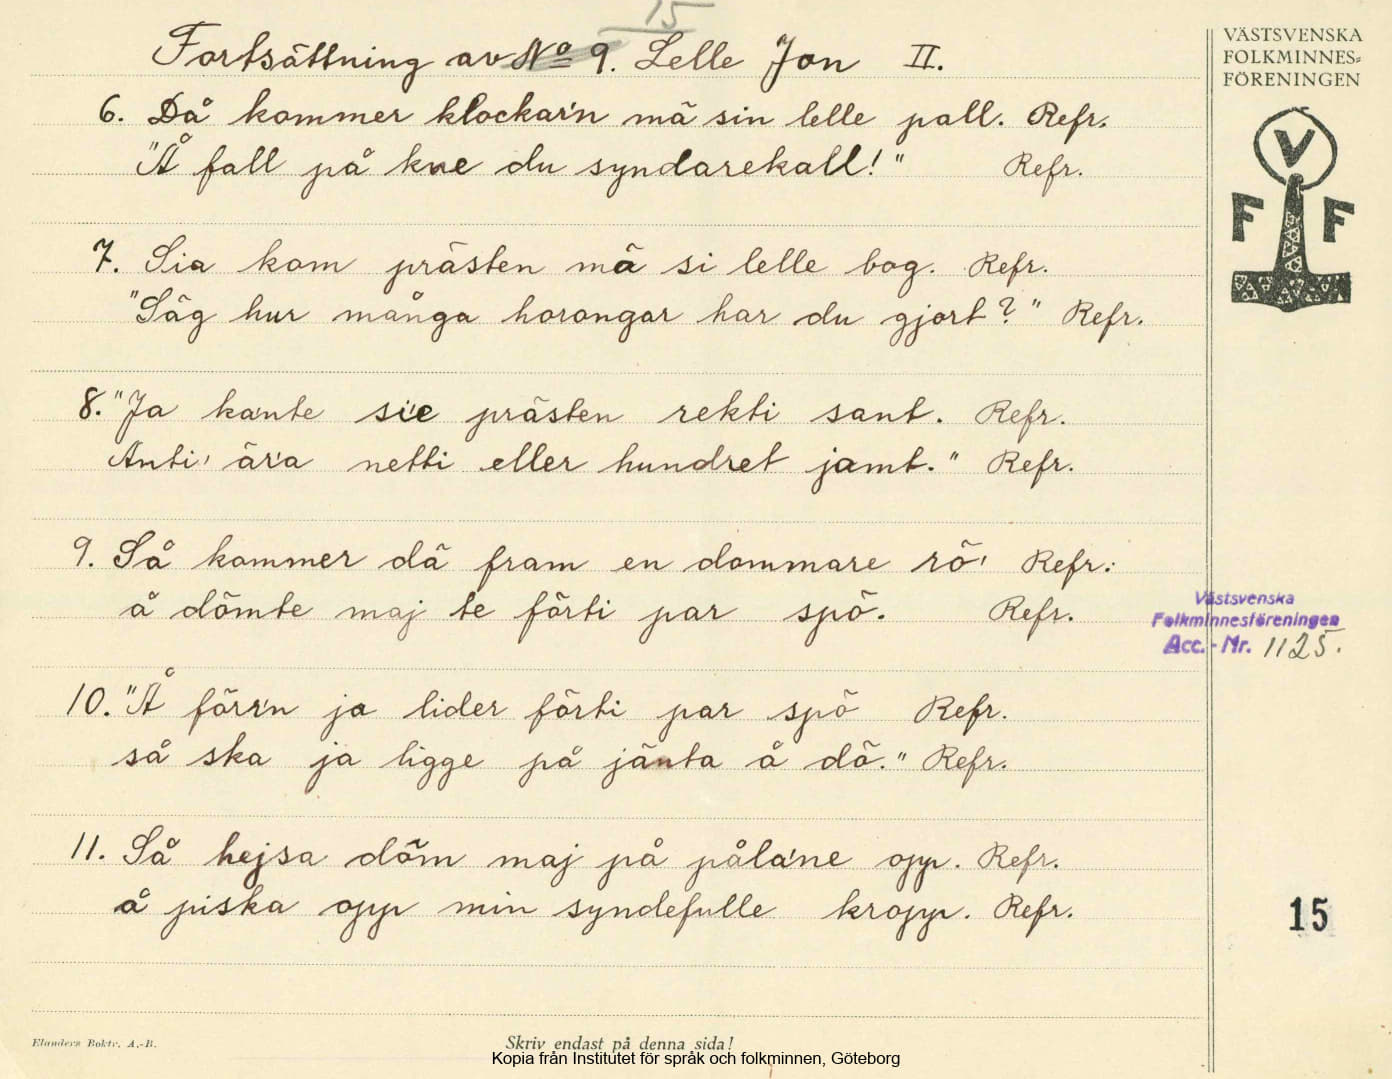 15
Fortsättning av No 9. Lelle Jon II.
VÄSTSVENSKA
FOLKMINNES=
FÖRENINGEN
6. Då kommer klockar'n mä sin lelle pall. Refr.
"Å fall på kne du syndarekall!" Refr.
V
F F
7. Sia kom prästen mä si lelle bog. Refr.
"Säg hur många horongar har du gjort?" Refr.
8. "Ja ka'nte si'e prästen rekti sant. Refr.
Anti' är'a netti eller hundret jamt." Refr.
9. Så kommer dä fram en dommare rö' Refr.
å dömte maj te förti par spö. Refr.
Västsvenska
Folkminnesföreningen
Acc.-Nr. 1125.
10. "Å förr'n ja lider förti par spö Refr.
så ska ja ligge på jänta å dö." Refr.
11. Så hejsa döm maj på påla'ne opp. Refr.
å piska opp min syndefulle kropp. Refr.
15
Elanders Boktr. A.-B.
Skriv endast på denna sida!
Kopia från Institutet för språk och folkminnen, Göteborg